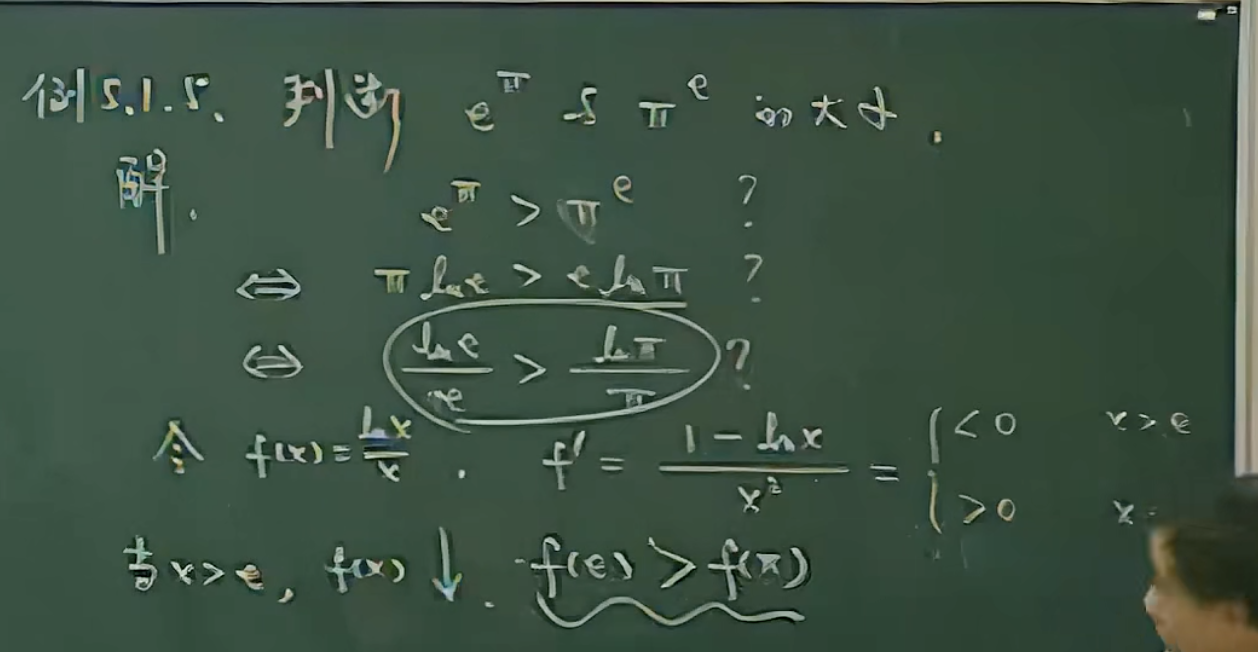 例5.1.5. 判断 e^π 与 π^e 的大小.
解. e^π > π^e ?
⇔ π ln e > e ln π ?
⇔ ln e / e > ln π / π ?
令 f(x) = ln x / x . f' = (1 - ln x) / x² = { < 0 x > e
> 0 x
当 x > e, f(x) ↓. f(e) > f(π)